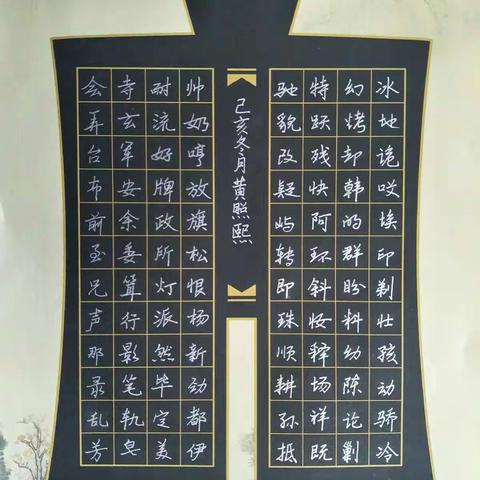 冰地诡哎埃印剃壮孩动骄冷
幻烤却韩的群盼料幼陈论剿
特跃残快阿环斜妆释场祥既
驰貌改疑屿转即珠顺耕孙抵
己亥冬月黄照熙
帅奶哼放旗松恨杨新劲都伊
耐流好牌政所灯派然毕定美
寺玄军安余委算行影笔轨皂
会弄台布前至兄声那录乱芳